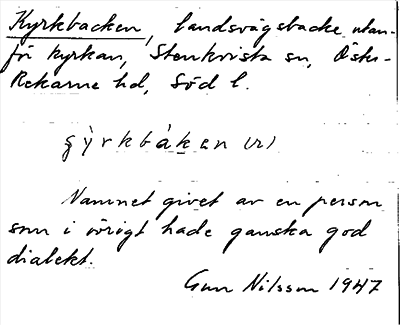 Kyrkbacken, landsvägsbacke utan-
för kyrkan, Stenkvista sn, Öster-
Rekarne hd, Söd l.
çỳrkbákan (2)
Namnet givet av en person
som i övrigt hade ganska god
dialekt.
Gun Nilsson 1947